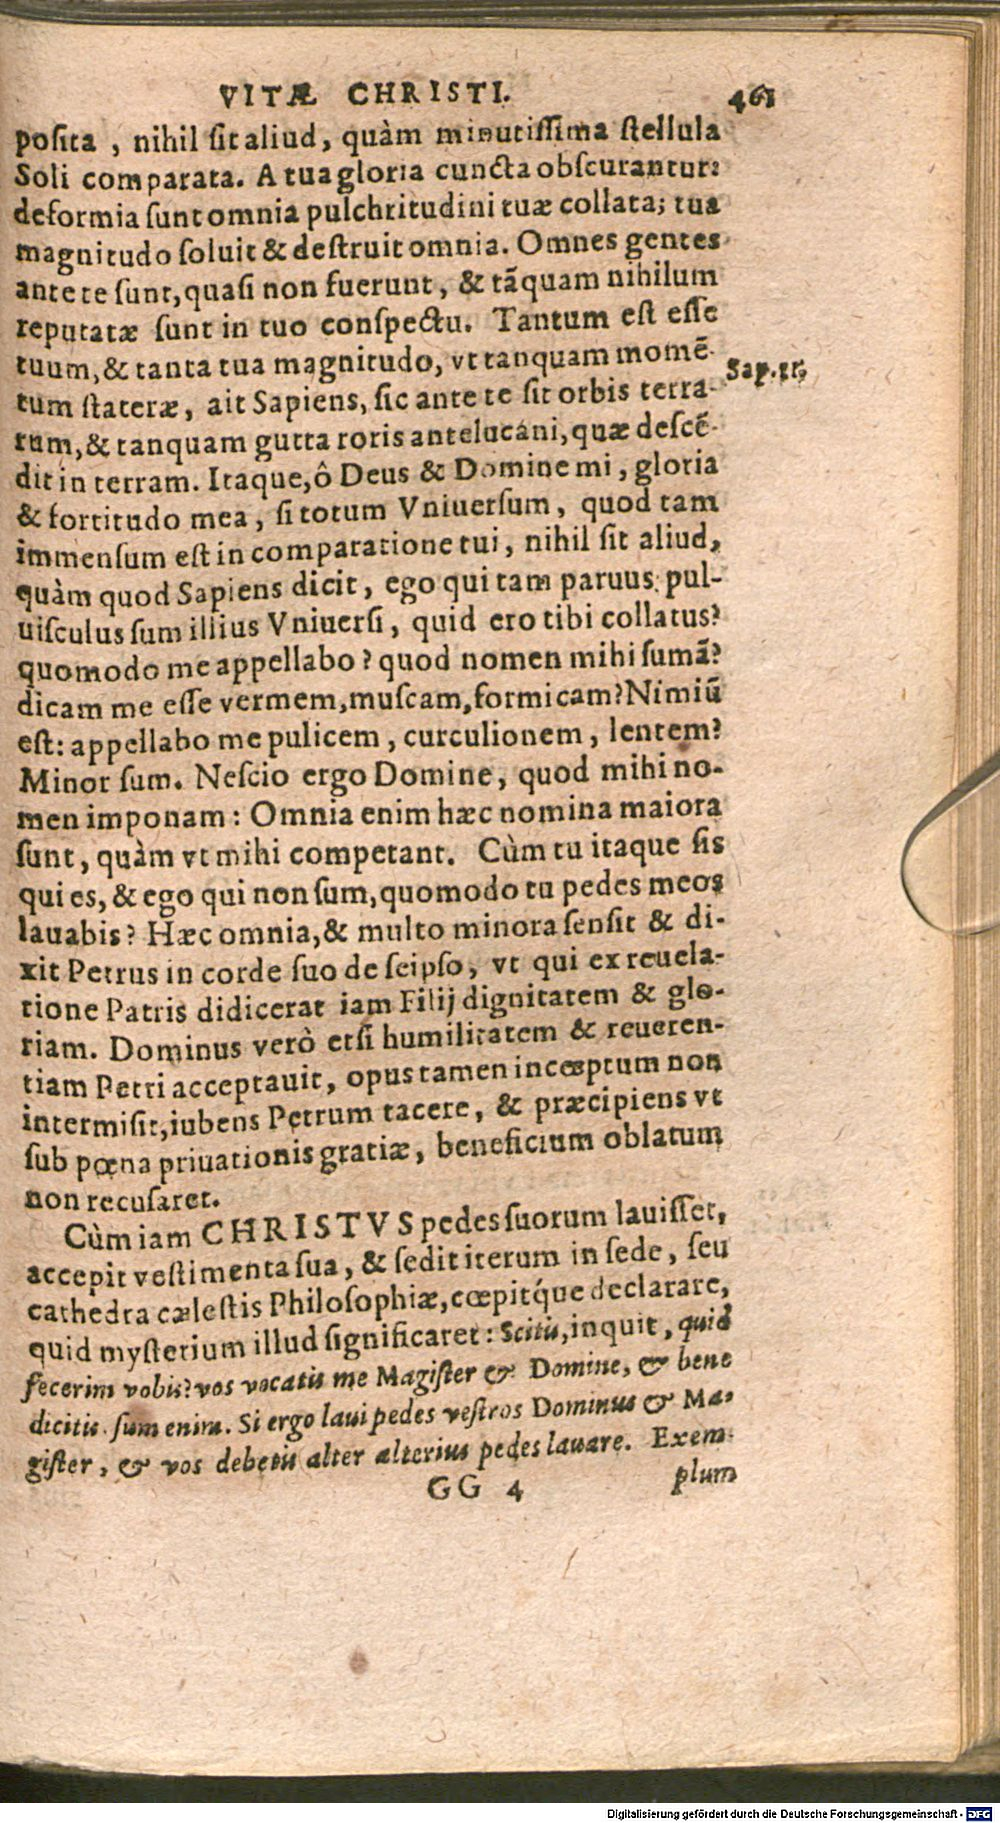 VITÆ CHRISTI. 461
posita , nihil sit aliud, quàm minutissima stellula
Soli comparata. A tua gloria cuncta obscurantur:
deformia sunt omnia pulchritudini tuæ collata; tua
magnitudo soluit & destruit omnia. Omnes gentes
ante te sunt, quasi non fuerunt , & tãquam nihilum
reputatæ sunt in tuo conspectu. Tantum est esse
tuum, & tanta tua magnitudo, vt tanquam momẽ-
Sap. 11.
tum stateræ, ait Sapiens, sic ante te sit orbis terra-
rum, & tanquam gutta roris antelucáni, quæ descẽ-
dit in terram. Itaque, ô Deus & Domine mi , gloria
& fortitudo mea , si totum Vniuersum , quod tam
immensum est in comparatione tui , nihil sit aliud,
quàm quod Sapiens dicit , ego qui tam paruus pul-
uisculus sum illius Vniuersi , quid ero tibi collatus?
quomodo me appellabo ? quod nomen mihi sumã?
dicam me esse vermem, muscam, formicam? Nimiũ
est: appellabo me pulicem , curculionem , lentem?
Minor sum. Nescio ergo Domine , quod mihi no-
men imponam : Omnia enim hæc nomina maiora
sunt , quàm vt mihi competant. Cùm tu itaque sis
qui es, & ego qui non sum, quomodo tu pedes meos
lauabis? Hæc omnia, & multo minora sensit & di-
xit Petrus in corde suo de seipso, vt qui ex reuela-
tione Patris didicerat iam Filij dignitatem & glo-
riam. Dominus verò etsi humilitatem & reueren-
tiam Petri acceptauit, opus tamen incœptum non
intermisit, iubens Petrum tacere , & præcipiens vt
sub pœna priuationis gratiæ , beneficium oblatum
non recusaret.
Cùm iam CHRISTVS pedes suorum lauisset,
accepit vestimenta sua , & sedit iterum in sede , seu
cathedra cælestis Philosophiæ, cœpitq́ue declarare,
quid mysterium illud significaret : Scitis, inquit , quid
fecerim vobis? vos vocatis me Magister & Domine, & bene
dicitis. sum enim. Si ergo laui pedes vestros Dominus & Ma-
gister , & vos debetis alter alterius pedes lauare. Exem-
GG 4 plum
Digitalisierung gefördert durch die Deutsche Forschungsgemeinschaft - DFG